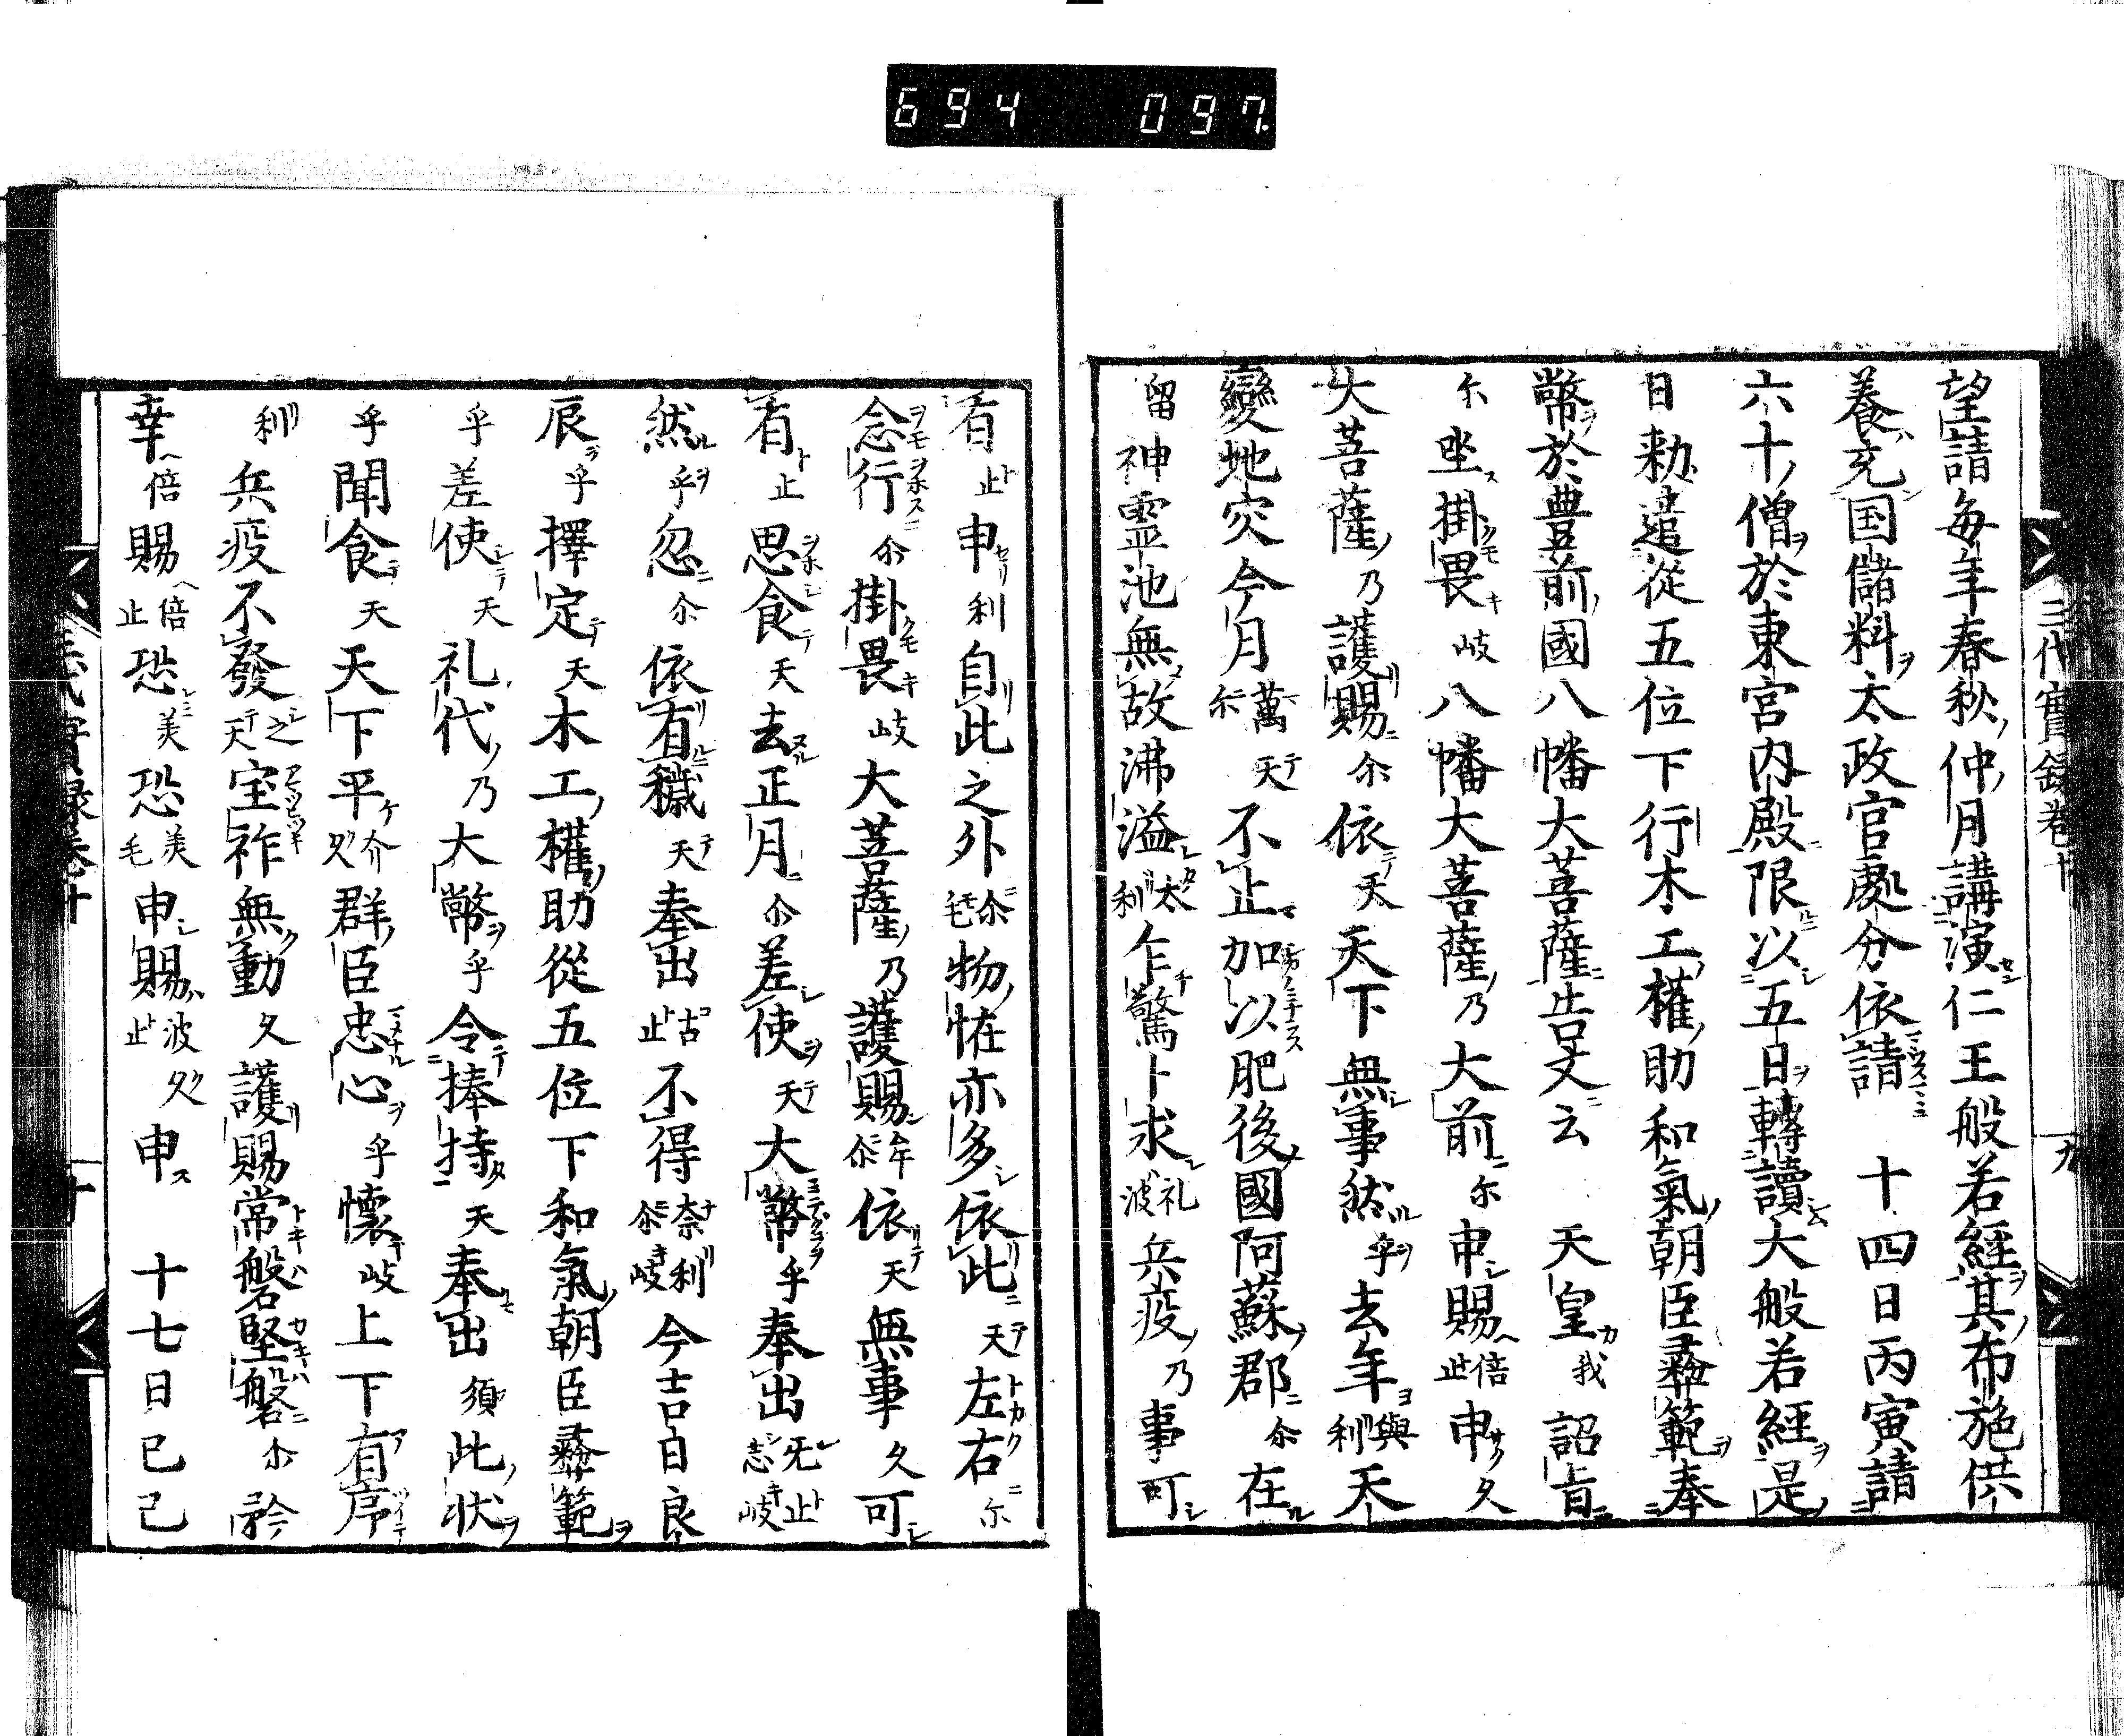 694 097
三代實録卷十
九
望請毎年春秋仲月講演仁王般若經其布施供
養充国儲料太政官處分依請 十四日丙寅請
六十僧於東宮内殿限以五日轉讀大般若經是
日勅遣從五位下行木工權助和氣朝臣彜範奉
幣於豊前國八幡大菩薩告文云 天皇我詔旨
尓坐掛畏岐八幡大菩薩乃大前尓申賜倍止申久
大菩薩乃護賜尓依天天下無事然乎去年與利天
變地灾今月尓萬天不止加以肥後國阿蘇郡尓在
留神霊池無故沸溢太利乍驚卜求礼波兵疫乃事可
有止申利自此之外尓毛物恠亦多依此天左右尓
念行尓掛畏岐大菩薩乃護賜牟尓依天無事久可
有止思食天去正月尓差使天大幣乎奉出牟止志岐
然乎忽尓依有穢天奉出古止不得奈利尓岐今吉日良
辰乎擇定天木工權助從五位下和氣朝臣彜範
乎差使天礼代乃大幣乎令捧持天奉出須此状
乎聞食天天下平介久群臣忠心乎懐岐上下有序
利兵疫不發之天宝祚無動久護賜常磐堅磐尓矜
幸倍賜倍止恐美恐美毛申賜波久止申 十七日己巳
三代實録卷十
十